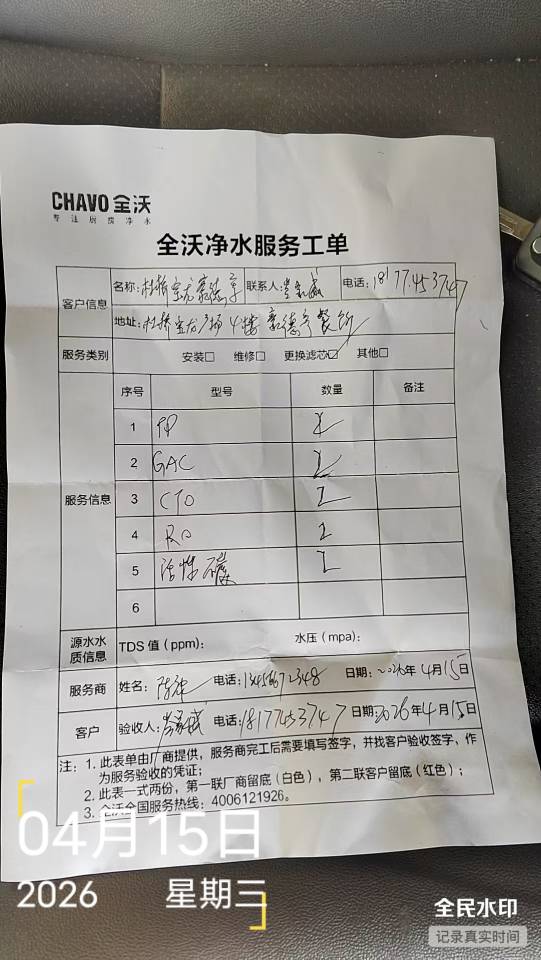 CHAVO 全沃
专注厨房净水
全沃净水服务工单
客户信息 名称: 桂林宝龙 联系人: 电话: 18177453747
地址: 桂林宝龙广场4楼 餐饮
服务类别 安装□ 维修□ 更换滤芯☑ 其他□
服务信息 序号 型号 数量 备注
1 PP 2
2 GAC 2
3 CTO 2
4 RO 2
5 活性碳 2
6
源水水质信息 TDS 值 (ppm): 水压 (mpa):
服务商 姓名: 陈 电话: 13456672348 日期: 2026年4月15日
客户 验收人: 电话: 18177453747 日期: 2026年4月15日
注: 1. 此表单由厂商提供，服务商完工后需要填写签字，并找客户验收签字，作
为服务验收的凭证；
2. 此表一式两份，第一联厂商留底 (白色)，第二联客户留底 (红色)；
3. 全沃全国服务热线: 4006121926。
04月15日
2026 星期三
全民水印
记录真实时间